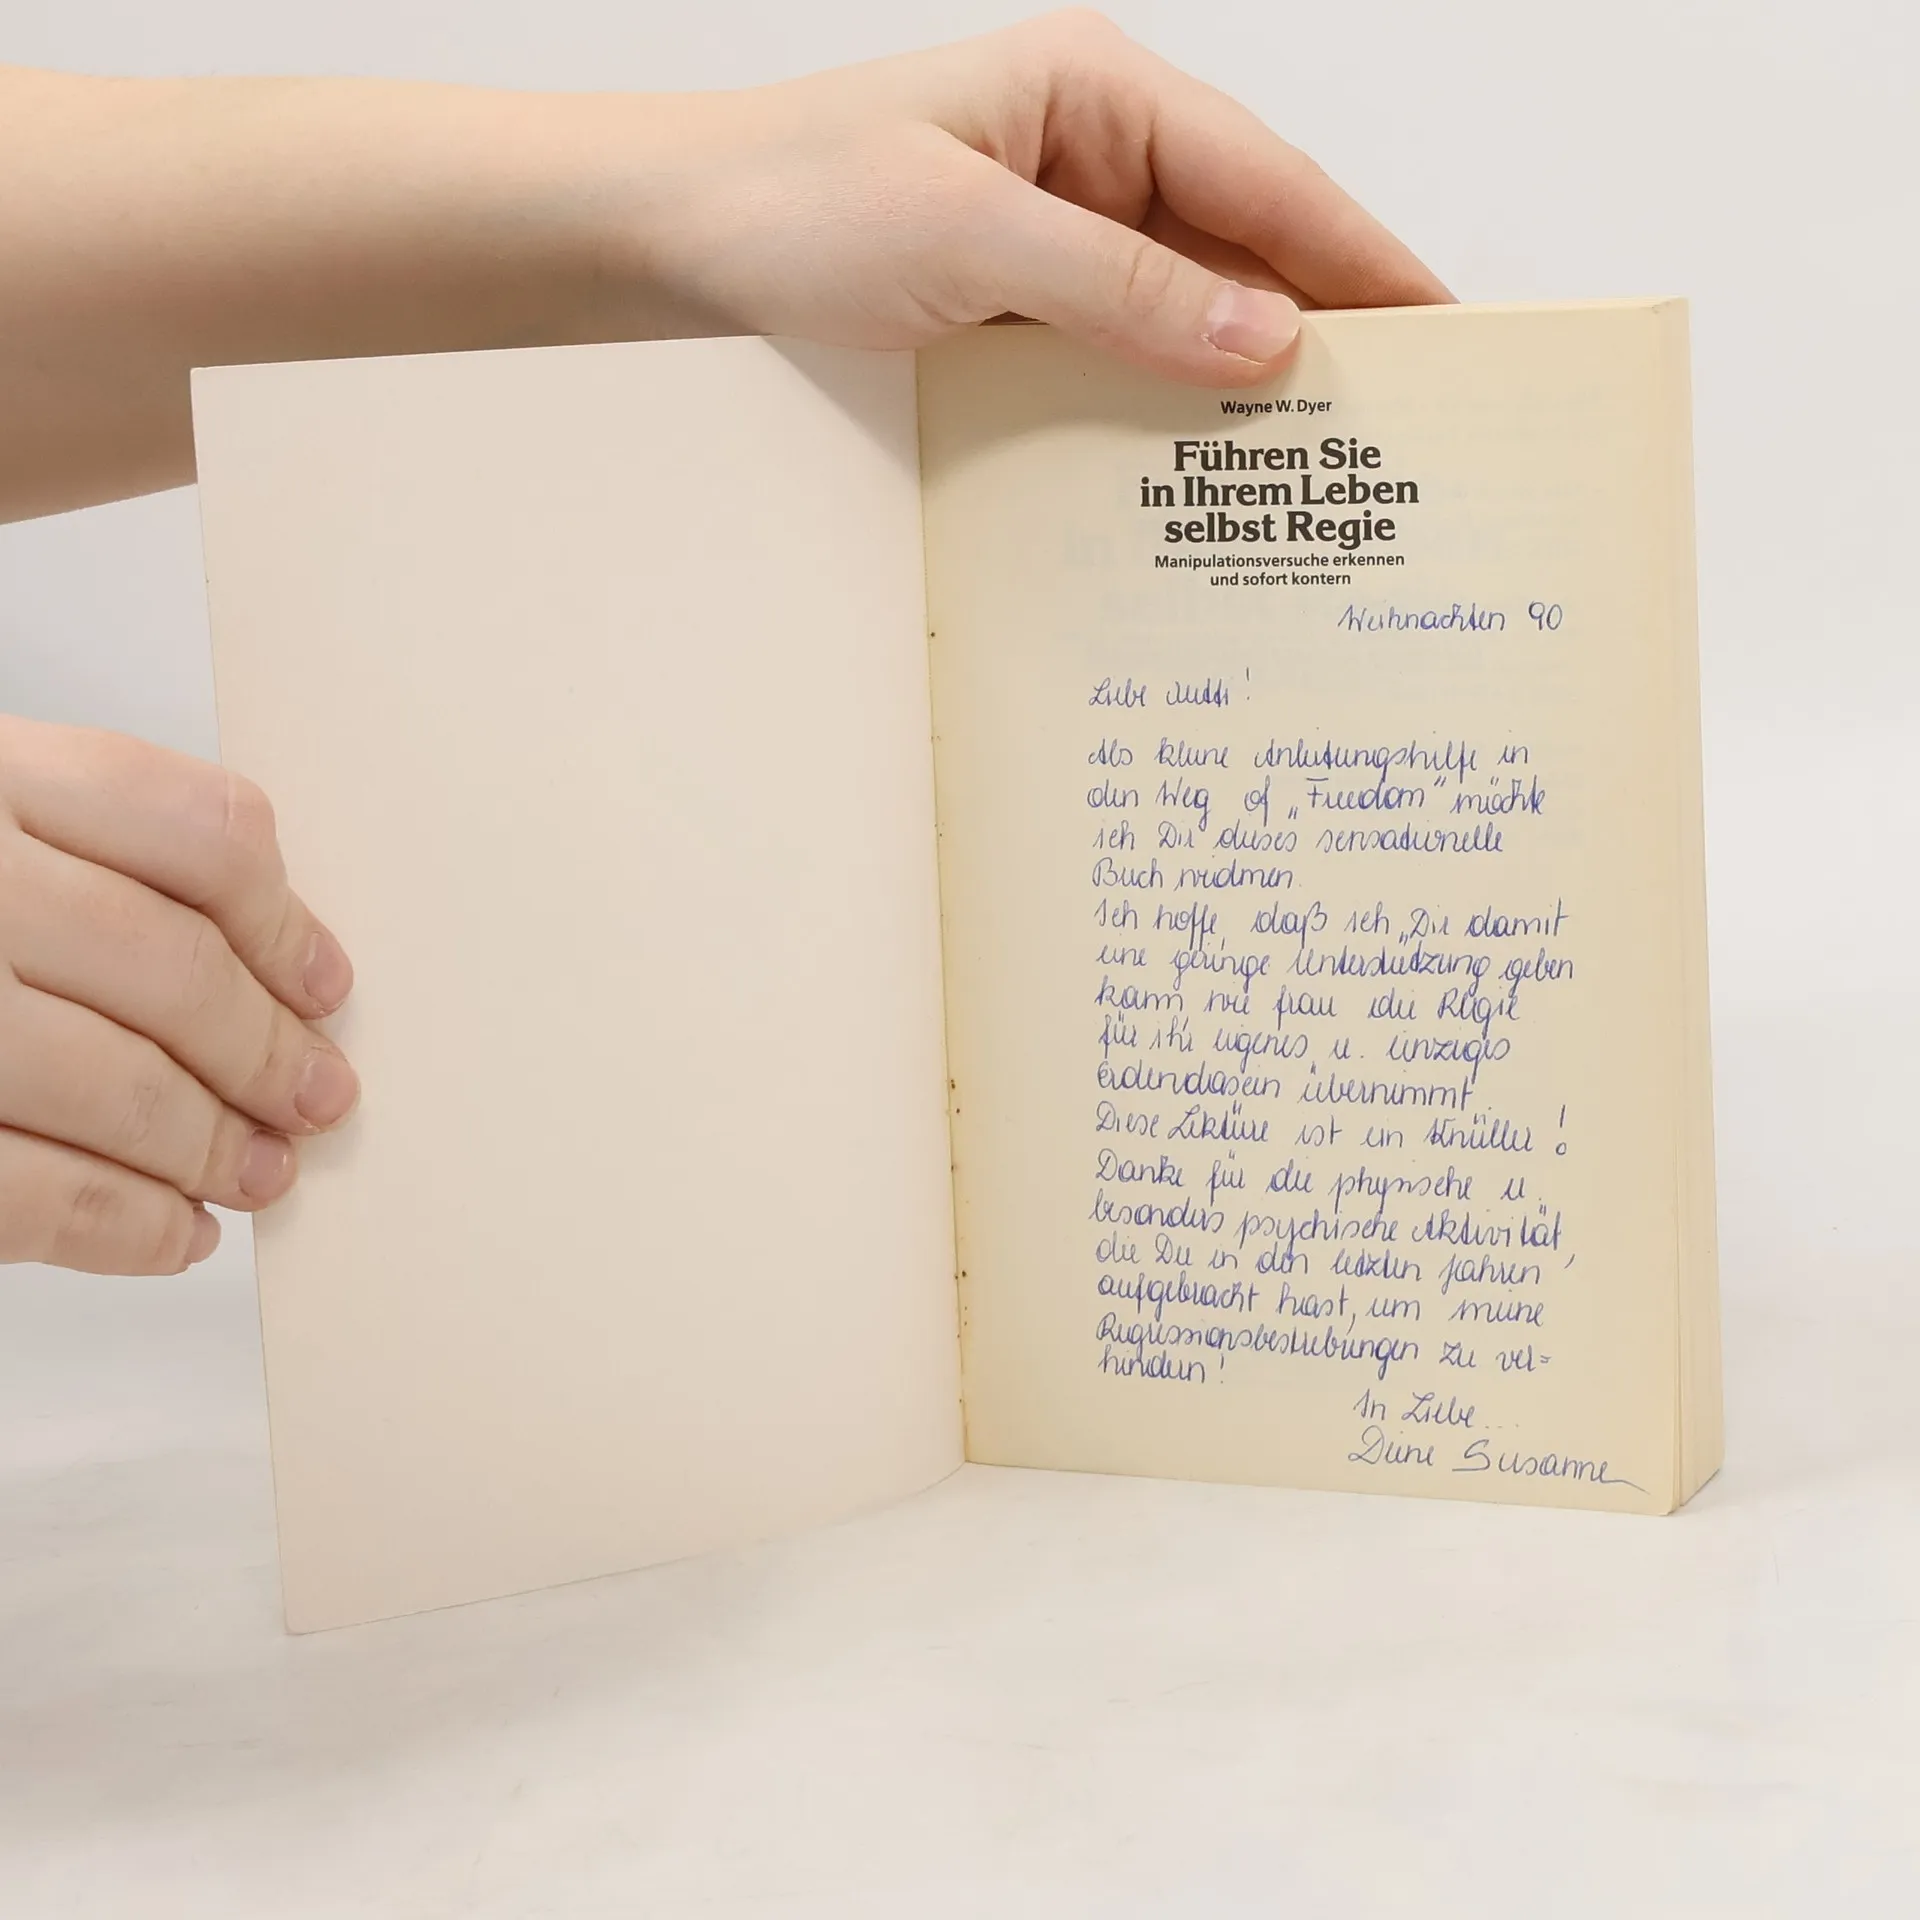 Wayne W. Dyer
Führen Sie
in Ihrem Leben
selbst Regie
Manipulationsversuche erkennen
und sofort kontern
Weihnachten 90
Liebe Mutti!
Als kleine Anleitungshilfe in
den Weg of „Freedom" möchte
ich Dir dieses sensationelle
Buch widmen.
Ich hoffe, daß ich Dir damit
eine geringe Unterstützung geben
kann, wie frau die Regie
für ihr eigenes u. einziges
Erdendasein übernimmt.
Diese Lektüre ist ein Knüller!
Danke für die physische u.
besonders psychische Aktivität,
die Du in den letzten Jahren
aufgebracht hast, um meine
Regressionsbestrebungen zu ver=
hindern!
In Liebe...
Deine Susanne